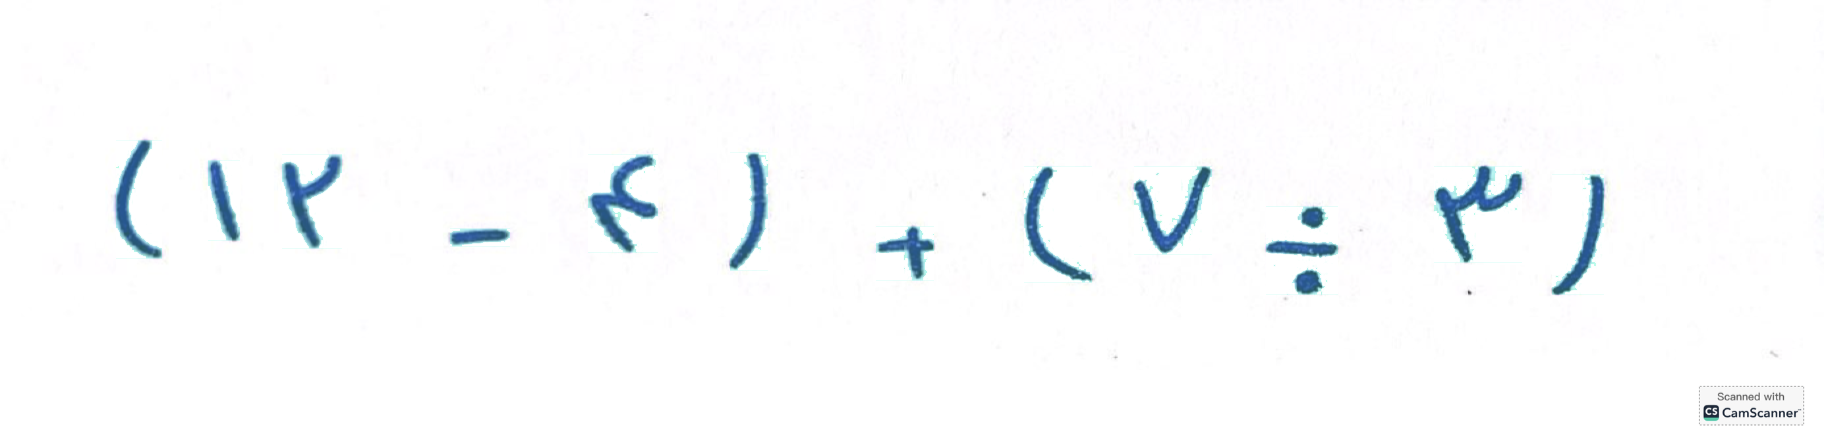 (۱۲ - ۴) + (۷ ÷ ۳)
Scanned with
CS CamScanner